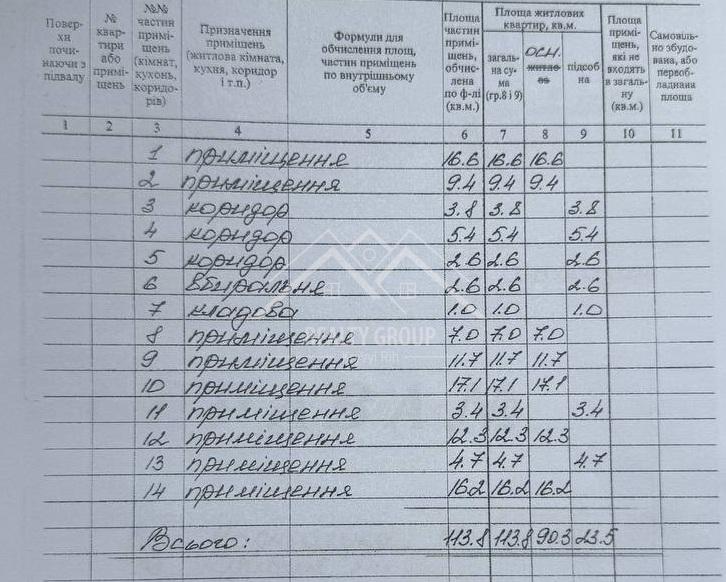 Поверхи починаючи з підвалу | № квартири або приміщень | №№ частин приміщень (кімнат, кухонь, коридорів) | Призначення приміщень (житлова кімната, кухня, коридор і т.п.) | Формули для обчислення площ, частин приміщень по внутрішньому об'єму | Площа частин приміщень, обчислена по ф-лі (кв.м.) | Площа житлових квартир, кв.м. | загальна сума (гр.8 і 9) | осн. житлова | підсобна | Площа приміщень, які не входять в загальну (кв.м.) | Самовільно збудована, або переобладнана площа
1 2 3 4 5 6 7 8 9 10 11
1 приміщення 16.6 16.6 16.6
2 приміщення 9.4 9.4 9.4
3 коридор 3.8 3.8 3.8
4 коридор 5.4 5.4 5.4
5 коридор 2.6 2.6 2.6
6 вбиральня 2.6 2.6 2.6
7 кладова 1.0 1.0 1.0
8 приміщення 7.0 7.0 7.0
REALTY GROUP
Kryvyi Rih
9 приміщення 11.7 11.7 11.7
10 приміщення 17.1 17.1 17.1
11 приміщення 3.4 3.4 3.4
12 приміщення 12.3 12.3 12.3
13 приміщення 4.7 4.7 4.7
14 приміщення 16.2 16.2 16.2
Всього: 113.8 113.8 90.3 23.5